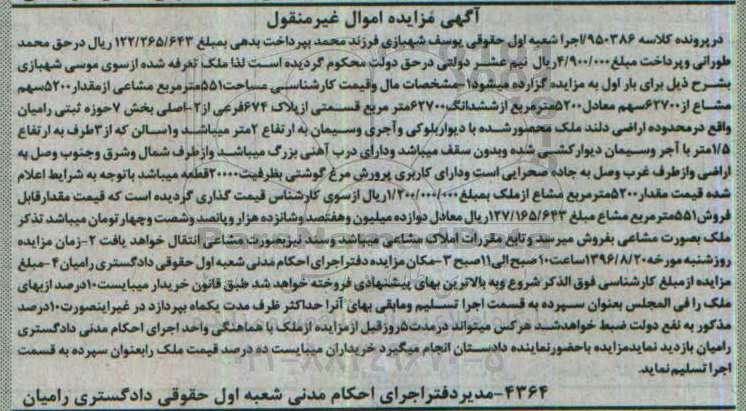 آگهی مزایده اموال غیرمنقول
در پرونده کلاسه ۹۵۰۳۸۶/اجرا شعبه اول حقوقی یوسف شهبازی فرزند محمد بپرداخت بدهی بمبلغ ۱۲۲/۲۶۵/۶۴۳ ریال در حق محمد
طورانی و پرداخت مبلغ ۴/۹۰۰/۰۰۰ریال نیم عشر دولتی در حق دولت محکوم گردیده است لذا ملک تعرفه شده از سوی موسی شهبازی
بشرح ذیل برای بار اول به مزایده گزارده میشود۱-مشخصات مال وقیمت کارشناسی مساحت۵۵۱مترمربع مشاعی از مقدار۵۲۰۰سهم
مشاع از ۶۲۷۰۰سهم معادل ۵۲۰۰مترمربع از ششدانگ۶۲۷۰۰متر مربع قسمتی از پلاک ۶۷۴فرعی از۲-اصلی بخش ۷حوزه ثبتی رامیان
واقع در محدوده اراضی دلند ملک محصور شده با دیواربلوکی وآجری وسیمان به ارتفاع ۲متر میباشد و۱سالن که از ۳طرف به ارتفاع
۱/۵متر با آجر وسیمان دیوارکشی شده وبدون سقف میباشد ودارای درب آهنی بزرگ میباشد وازطرف شمال وشرق وجنوب وصل به
اراضی وازطرف غرب وصل به جاده صحرایی است ودارای کاربری پرورش مرغ گوشتی بظرفیت۲۰۰۰۰قطعه میباشد باتوجه به شرایط اعلام
شده قیمت مقدار۵۲۰۰مترمربع مشاع ازملک بمبلغ۱/۲۰۰/۰۰۰/۰۰۰ریال از سوی کارشناس قیمت گذاری گردیده است که قیمت مقدار قابل
فروش۵۵۱مترمربع مشاع مبلغ ۱۲۷/۱۶۵/۶۴۳ریال معادل دوازده میلیون وهفتصد وشانزده هزار و پانصد وشصت وچهار تومان میباشد تذکر
ملک بصورت مشاعی بفروش میرسد و تابع مقررات املاک مشاعی میباشد وسند نیزبصورت مشاعی انتقال خواهد یافت ۲-زمان مزایده
روزشنبه مورخه ۱۳۹۶/۸/۲۰ساعت۱۰صبح الی۱۱صبح ۳-مکان مزایده دفتر اجرای احکام مدنی شعبه اول حقوقی دادگستری رامیان ۴-مبلغ
مزایده از مبلغ کارشناسی فوق الذکر شروع وبه بالاترین بهای پیشنهادی فروخته خواهد شد طبق قانون خریدار میبایست۱۰درصد از بهای
ملک را فی المجلس بعنوان سپرده به قسمت اجرا تسلیم ومابقی بهای آنرا حداکثر ظرف مدت یکماه بپردازد در غیراینصورت۱۰درصد
مذکور به نفع دولت ضبط خواهدشد هرکس میتواند درمدت۵روزقبل ازمزایده ازملک با هماهنگی واحد اجرای احکام مدنی دادگستری
رامیان بازدید نماید مزایده باحضورنماینده دادستان انجام میگیرد خریداران میبایست ده درصد قیمت ملک رابعنوان سپرده به قسمت
اجرا تسلیم نماید.
۴۳۶۴-مدیر دفتر اجرای احکام مدنی شعبه اول حقوقی دادگستری رامیان